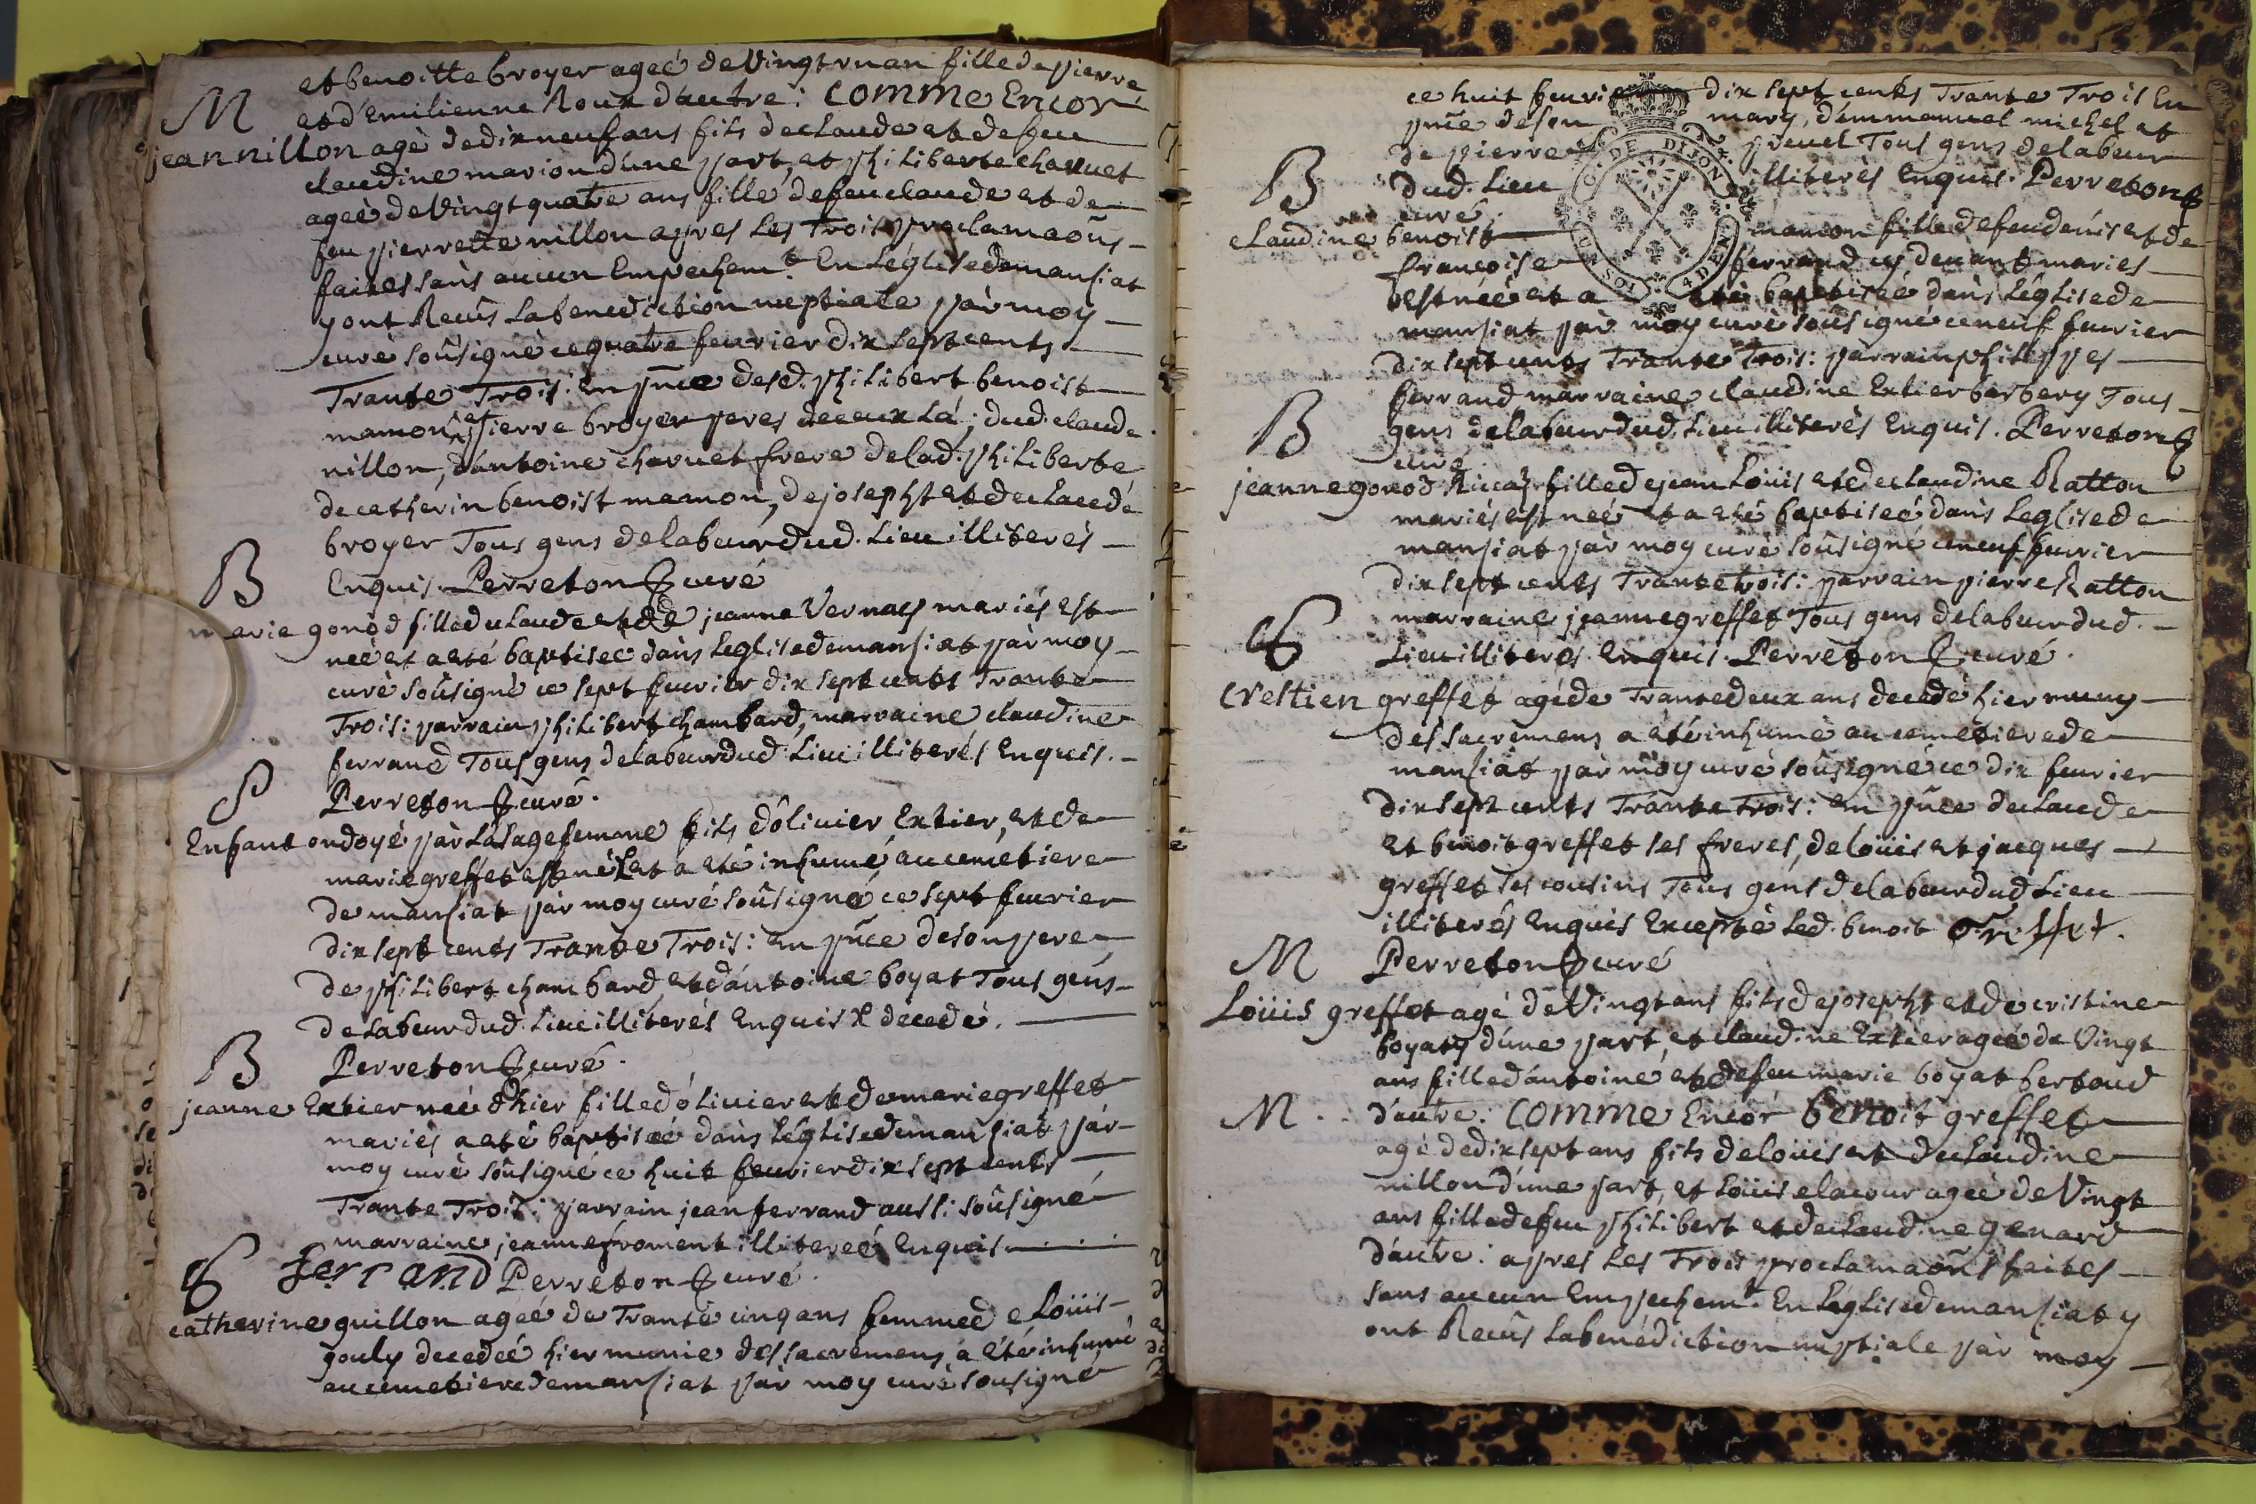 et benoitte broyer ageé de Vingt un an fille de pierre
M et d'Emilienne Roux d'autre : comme Encor
jean nillon agé de dix neuf ans fils de claude et de feu
claudine marion d'une part, et philiberte charuet
ageé de Vingt quatre ans fille de feu claude et de
feu pierrette nillon apres Les Trois proclamaōns
faites sans aucun Empechemt En Léglise de mansiat
y ont Receûs La benediction nuptiale par moy
curé soûsigné ce quatre feurier dix sept cents
Trante Trois : en pñce desd. philibert benoist
mamon, et pierre broyer peres de ceux La ; dud. claude
nillon, d'antoine charuet frere de lad. philiberte
de catherin benoist mamon, de joseph et de claude
broyer Tous gens de labeur dud. Lieu illiterés
Enquis. Perreton curé
B
marie gonod fille de claude et de jeanne Vernay mariés est
neé et a eté baptiseé dans Leglise de mansiat par moy
curé soûsigné ce sept feurier dix sept cents Trante
Trois : parrain philibert chambard, marraine claudine
ferrand Tous gens de labeur dud. Lieu illiterés Enquis.
S Perreton curé.
Enfant ondoyé par La sage femme fils d'olivier Extier, et de
marie greffet est né et a eté inhumé au cemetiere
de mansiat par moy curé soûsigné ce sept feurier
dix sept cents Trante Trois : en pñce de son pere
de philibert chambard, et d'antoine boyat Tous gens
de labeur dud. Lieu illiterés Enquis decedé.
B Perreton curé.
jeanne Extier neé d'hier fille d'olivier et de marie greffet
mariés a eté baptiseé dans Léglise de mansiat par
moy curé soûsigné ce huit feurier dix sept cents
Trante Trois : parrain jean ferrand aussi soûsigné
marraine jeanne froment illitereé Enquis
ferrand Perreton curé.
catherine guillon ageé de Trante cinq ans femme de Loüis
gouly decedeé hier munie des sacremens a eté inhumé
au cemetiere de mansiat par moy curé soûsigné
ce huit feurier dix sept cents Trante Trois En
pñce de son mary, d'emmanuel michel et
de pierre preuel Tous gens de labeur
B dud. Lieu illiterés Enquis. Perreton
curé.
claudine benoist mamon fille de feu denis et de
françoise ferrand cy deuant mariés
est neé et a eté baptiseé dans Léglise de
mansiat par moy curé soûsigné ce neuf feurier
dix sept cents Trante Trois : parrain philippes
ferrand marraine claudine Extier berbery Tous
B gens de labeur dud. Lieu illiterés Enquis. Perreton
curé
jeanne gonod fille de jean Loüis et de claudine Ratton
mariés est neé et a eté baptiseé dans Leglise de
mansiat par moy curé soûsigné ce neuf feurier
dix sept cents Trante trois : parrain pierre Ratton
marraine jeanne greffet Tous gens de labeur dud.
Lieu illiterés. Enquis. Perreton curé.
crestien greffet agé de Trante deux ans decedé hier muny
des sacremens a eté inhumé au cemetiere de
mansiat par moy curé soûsigné ce dix feurier
dix sept cents Trante Trois : en pñce de claude
et benoit greffet ses freres, de loüis et jacques
greffet ses cousins Tous gens de labeur dud Lieu
illiterés Enquis Excepté Led. benoit Greffet.
M Perreton curé
Loüis greffet agé de Vingt ans fils de joseph et de cristine
boyat d'une part, et claudine Extier ageé de Vingt
ans fille d'antoine et de feu marie boyat bertoud
M. d'autre : comme Encor benoit greffet
agé de dix sept ans fils de loüis et de claudine
nillon d'une part, et Loüise lacour ageé de Vingt
ans fille de feu philibert et de claudine genard
d'autre : apres Les Trois proclamaōns faites
sans aucun Empechemt. En Léglise de mansiat y
ont Receûs La benédiction nuptiale par moy
C. DE DIJON